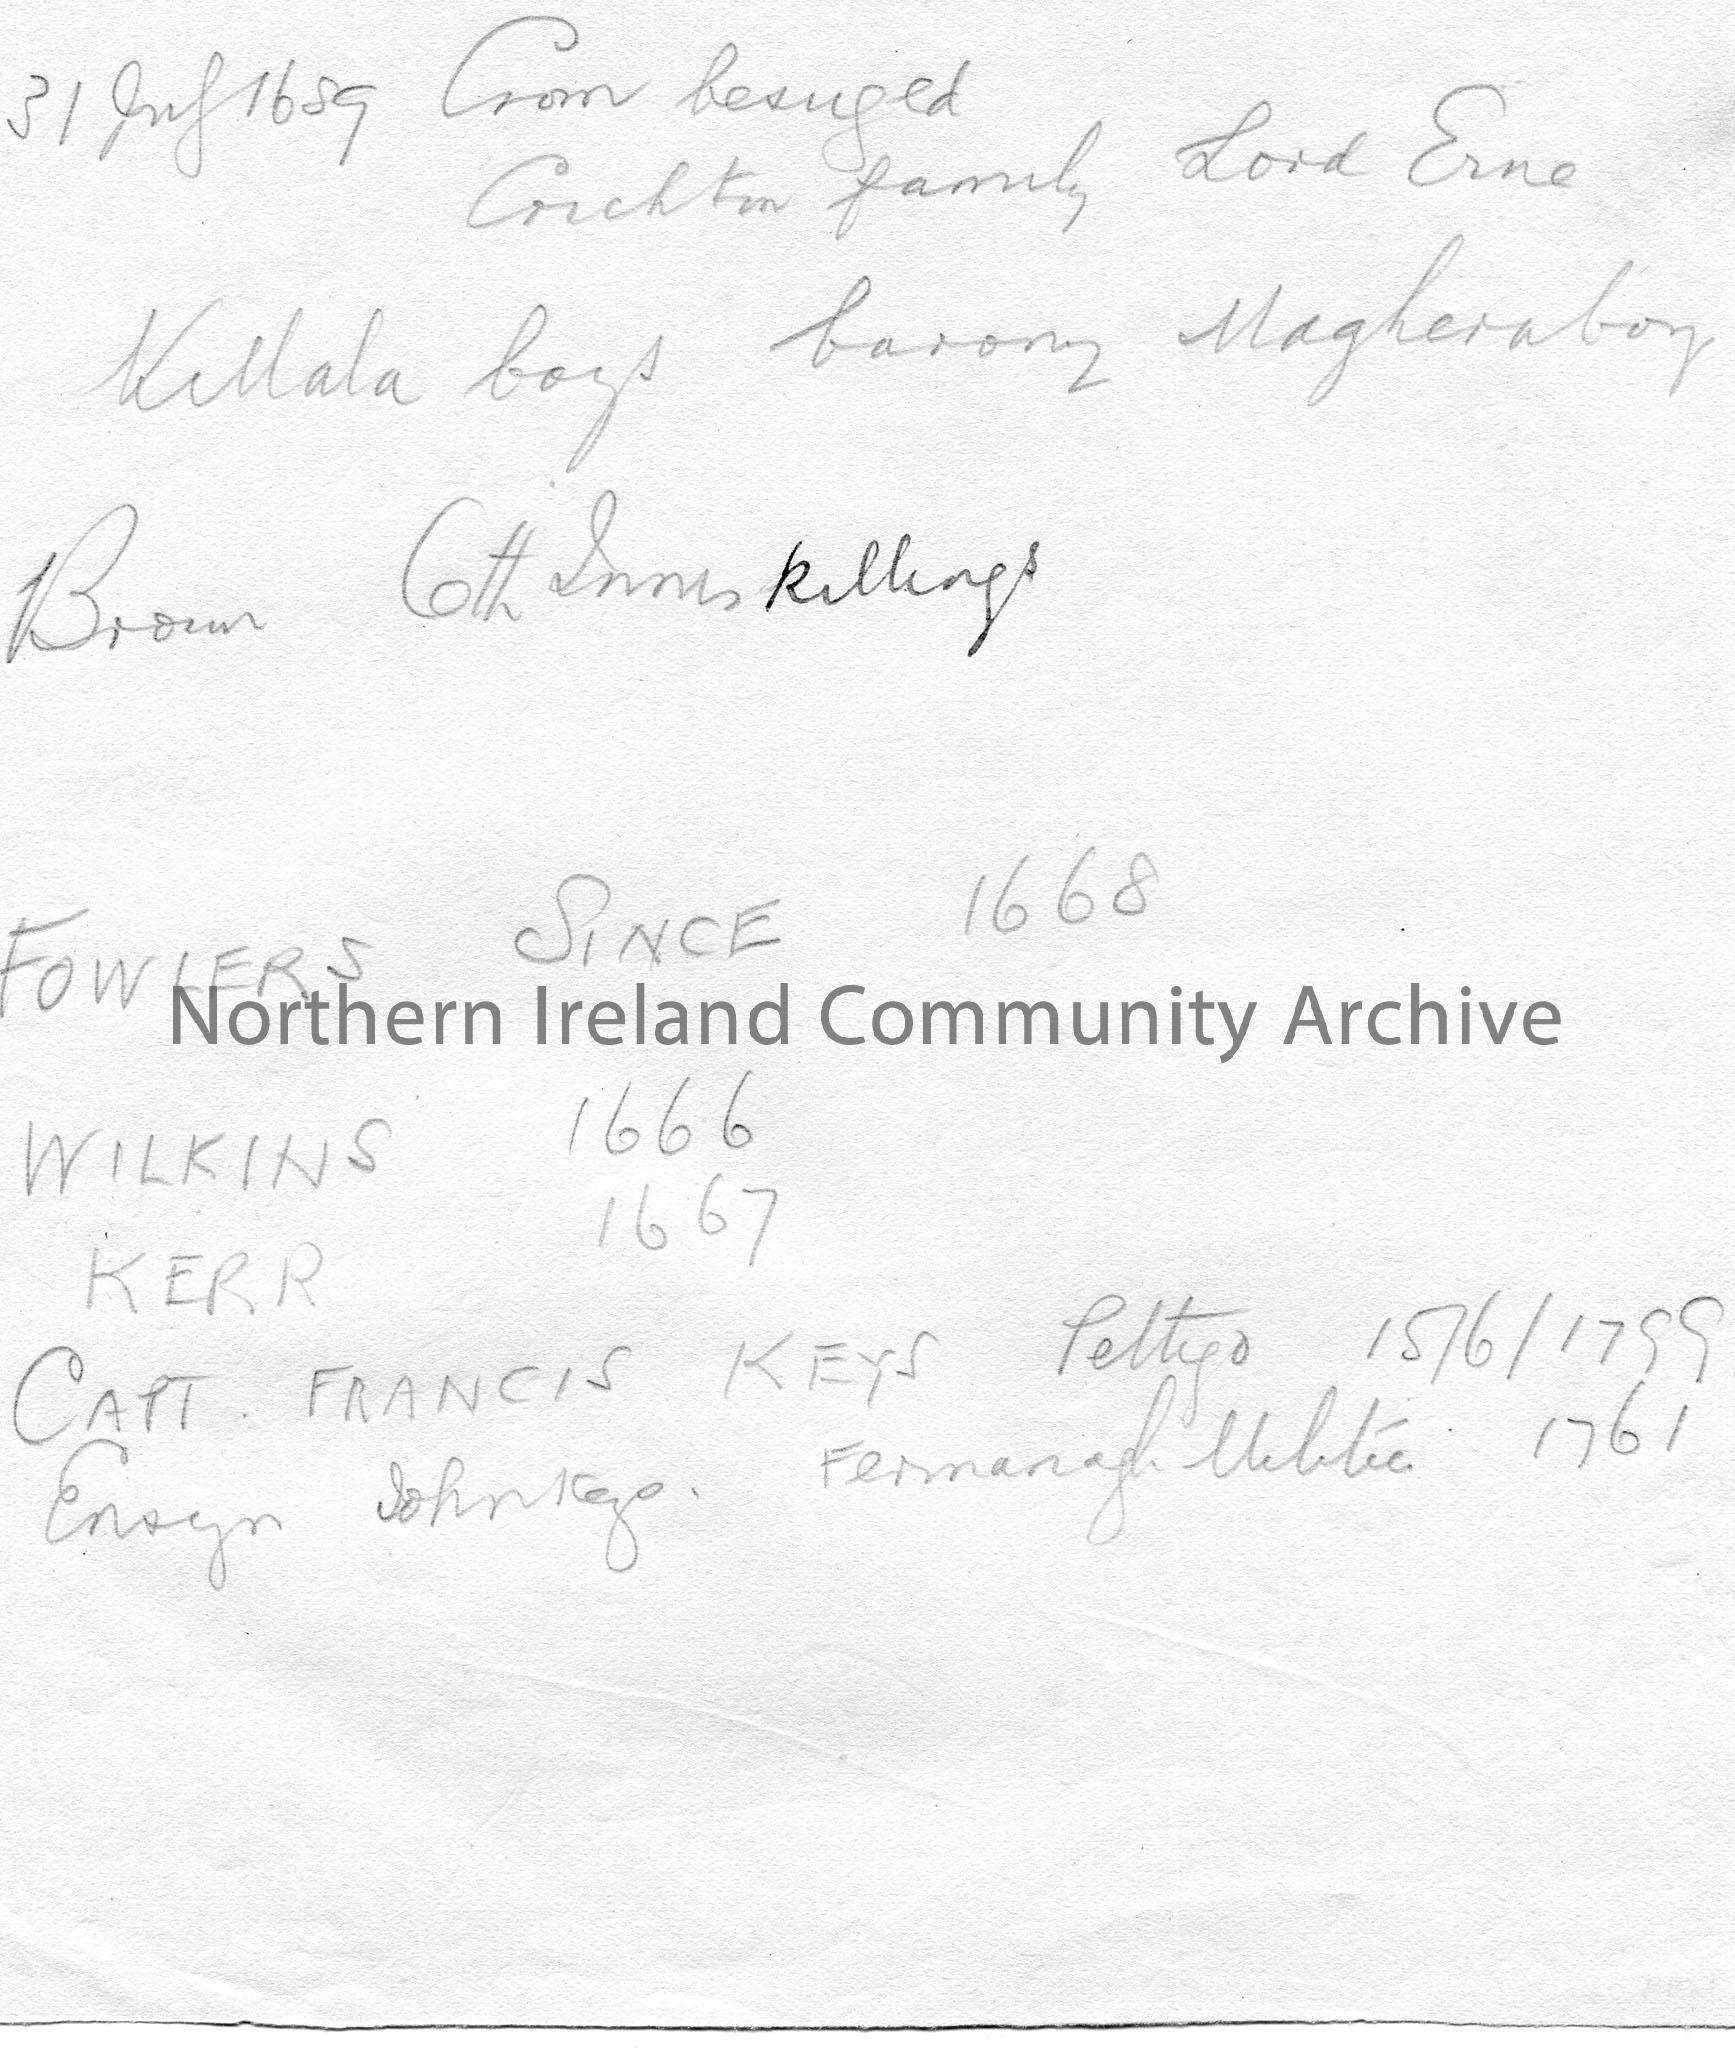 31 July 1689 Crom besieged
Crichton family Lord Erne
Killala boys barony Magheraboy
Brown 6th Inniskillings
FOWLERS SINCE 1668
Northern Ireland Community Archive
WILKINS 1666
KERR 1667
CAPT. FRANCIS KEYS Pettigo 15/6/1799
Ensign John Keys. Fermanagh Militia 1761